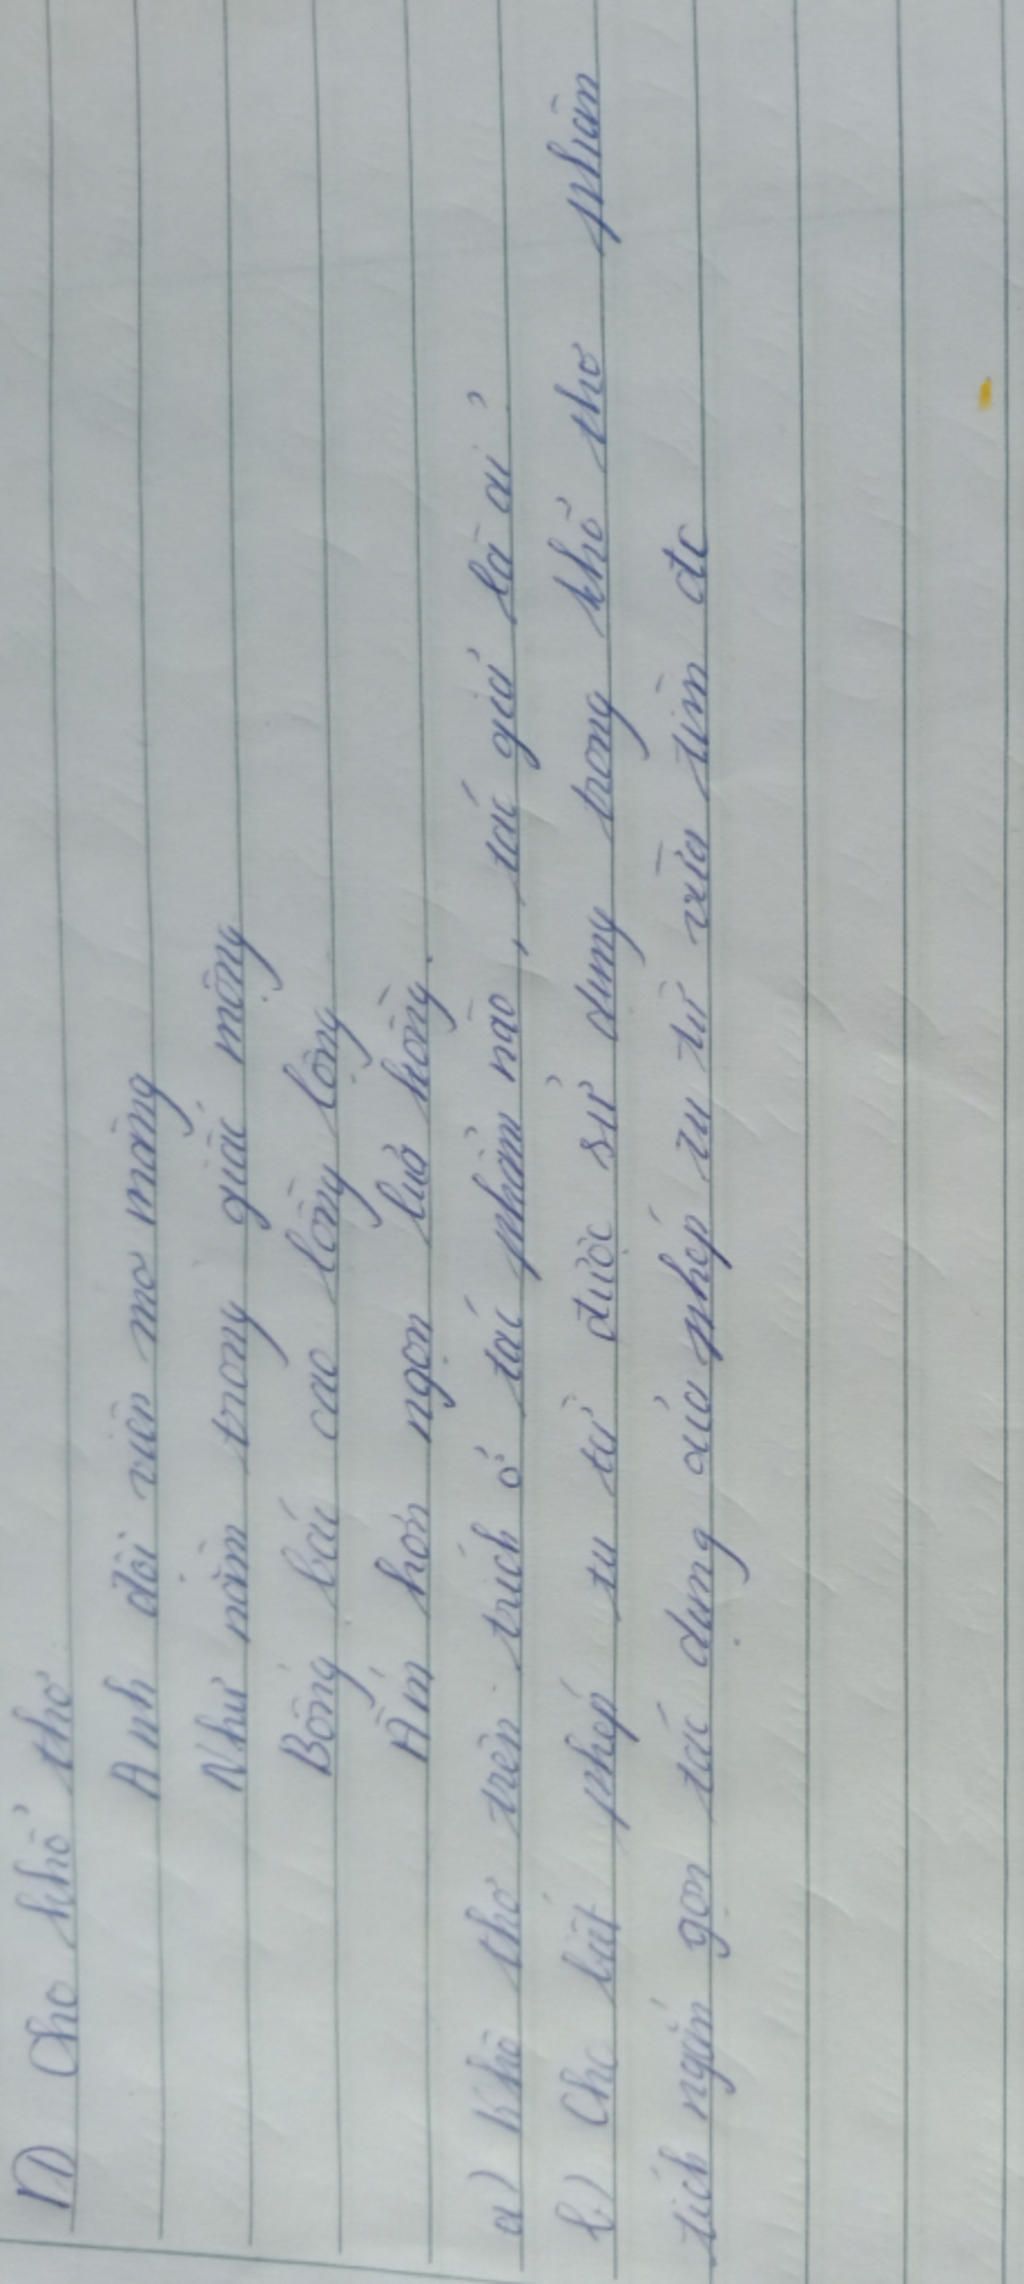 Cho khổ thơ
Anh đội viên mơ màng
Như nằm trong giấc mộng
Bóng bác cao lồng lộng
Ấm hơn ngọn lửa hồng.
a) Khổ thơ trên trích ở tác phẩm nào, tác giả là ai?
b) Cho biết phép tu từ được sử dụng trong khổ thơ phân
tích ngắn gọn tác dụng của phép tu từ vừa tìm đc